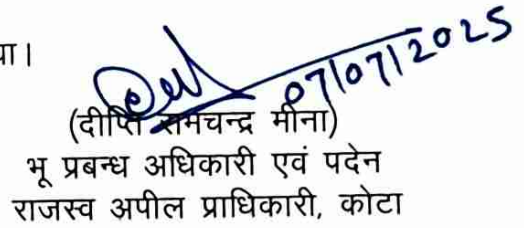 या।
07/07/2025
(दीप्ति रामचन्द्र मीना)
भू प्रबन्ध अधिकारी एवं पदेन
राजस्व अपील प्राधिकारी, कोटा